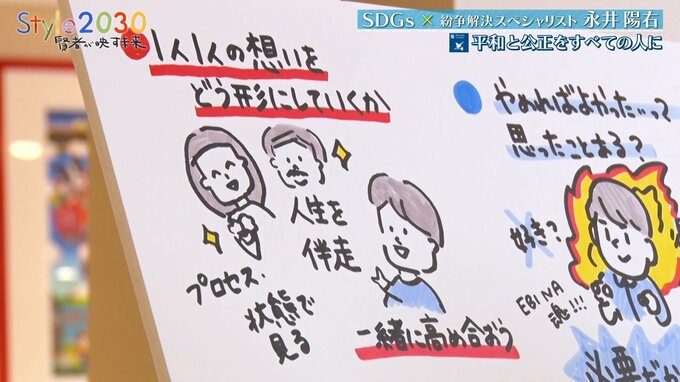 Style2030
賢者が映す未来
SDGs × 紛争解決スペシャリスト 永井陽右
平和と公正をすべての人に
1人1人の想いを
どう形にしていくか
人生を
伴走
プロセス・
状態で
見る
一緒に高め合おう
やめればよかった…って
思ったことある?
好き?
EBINA
魂!!!
必要だか